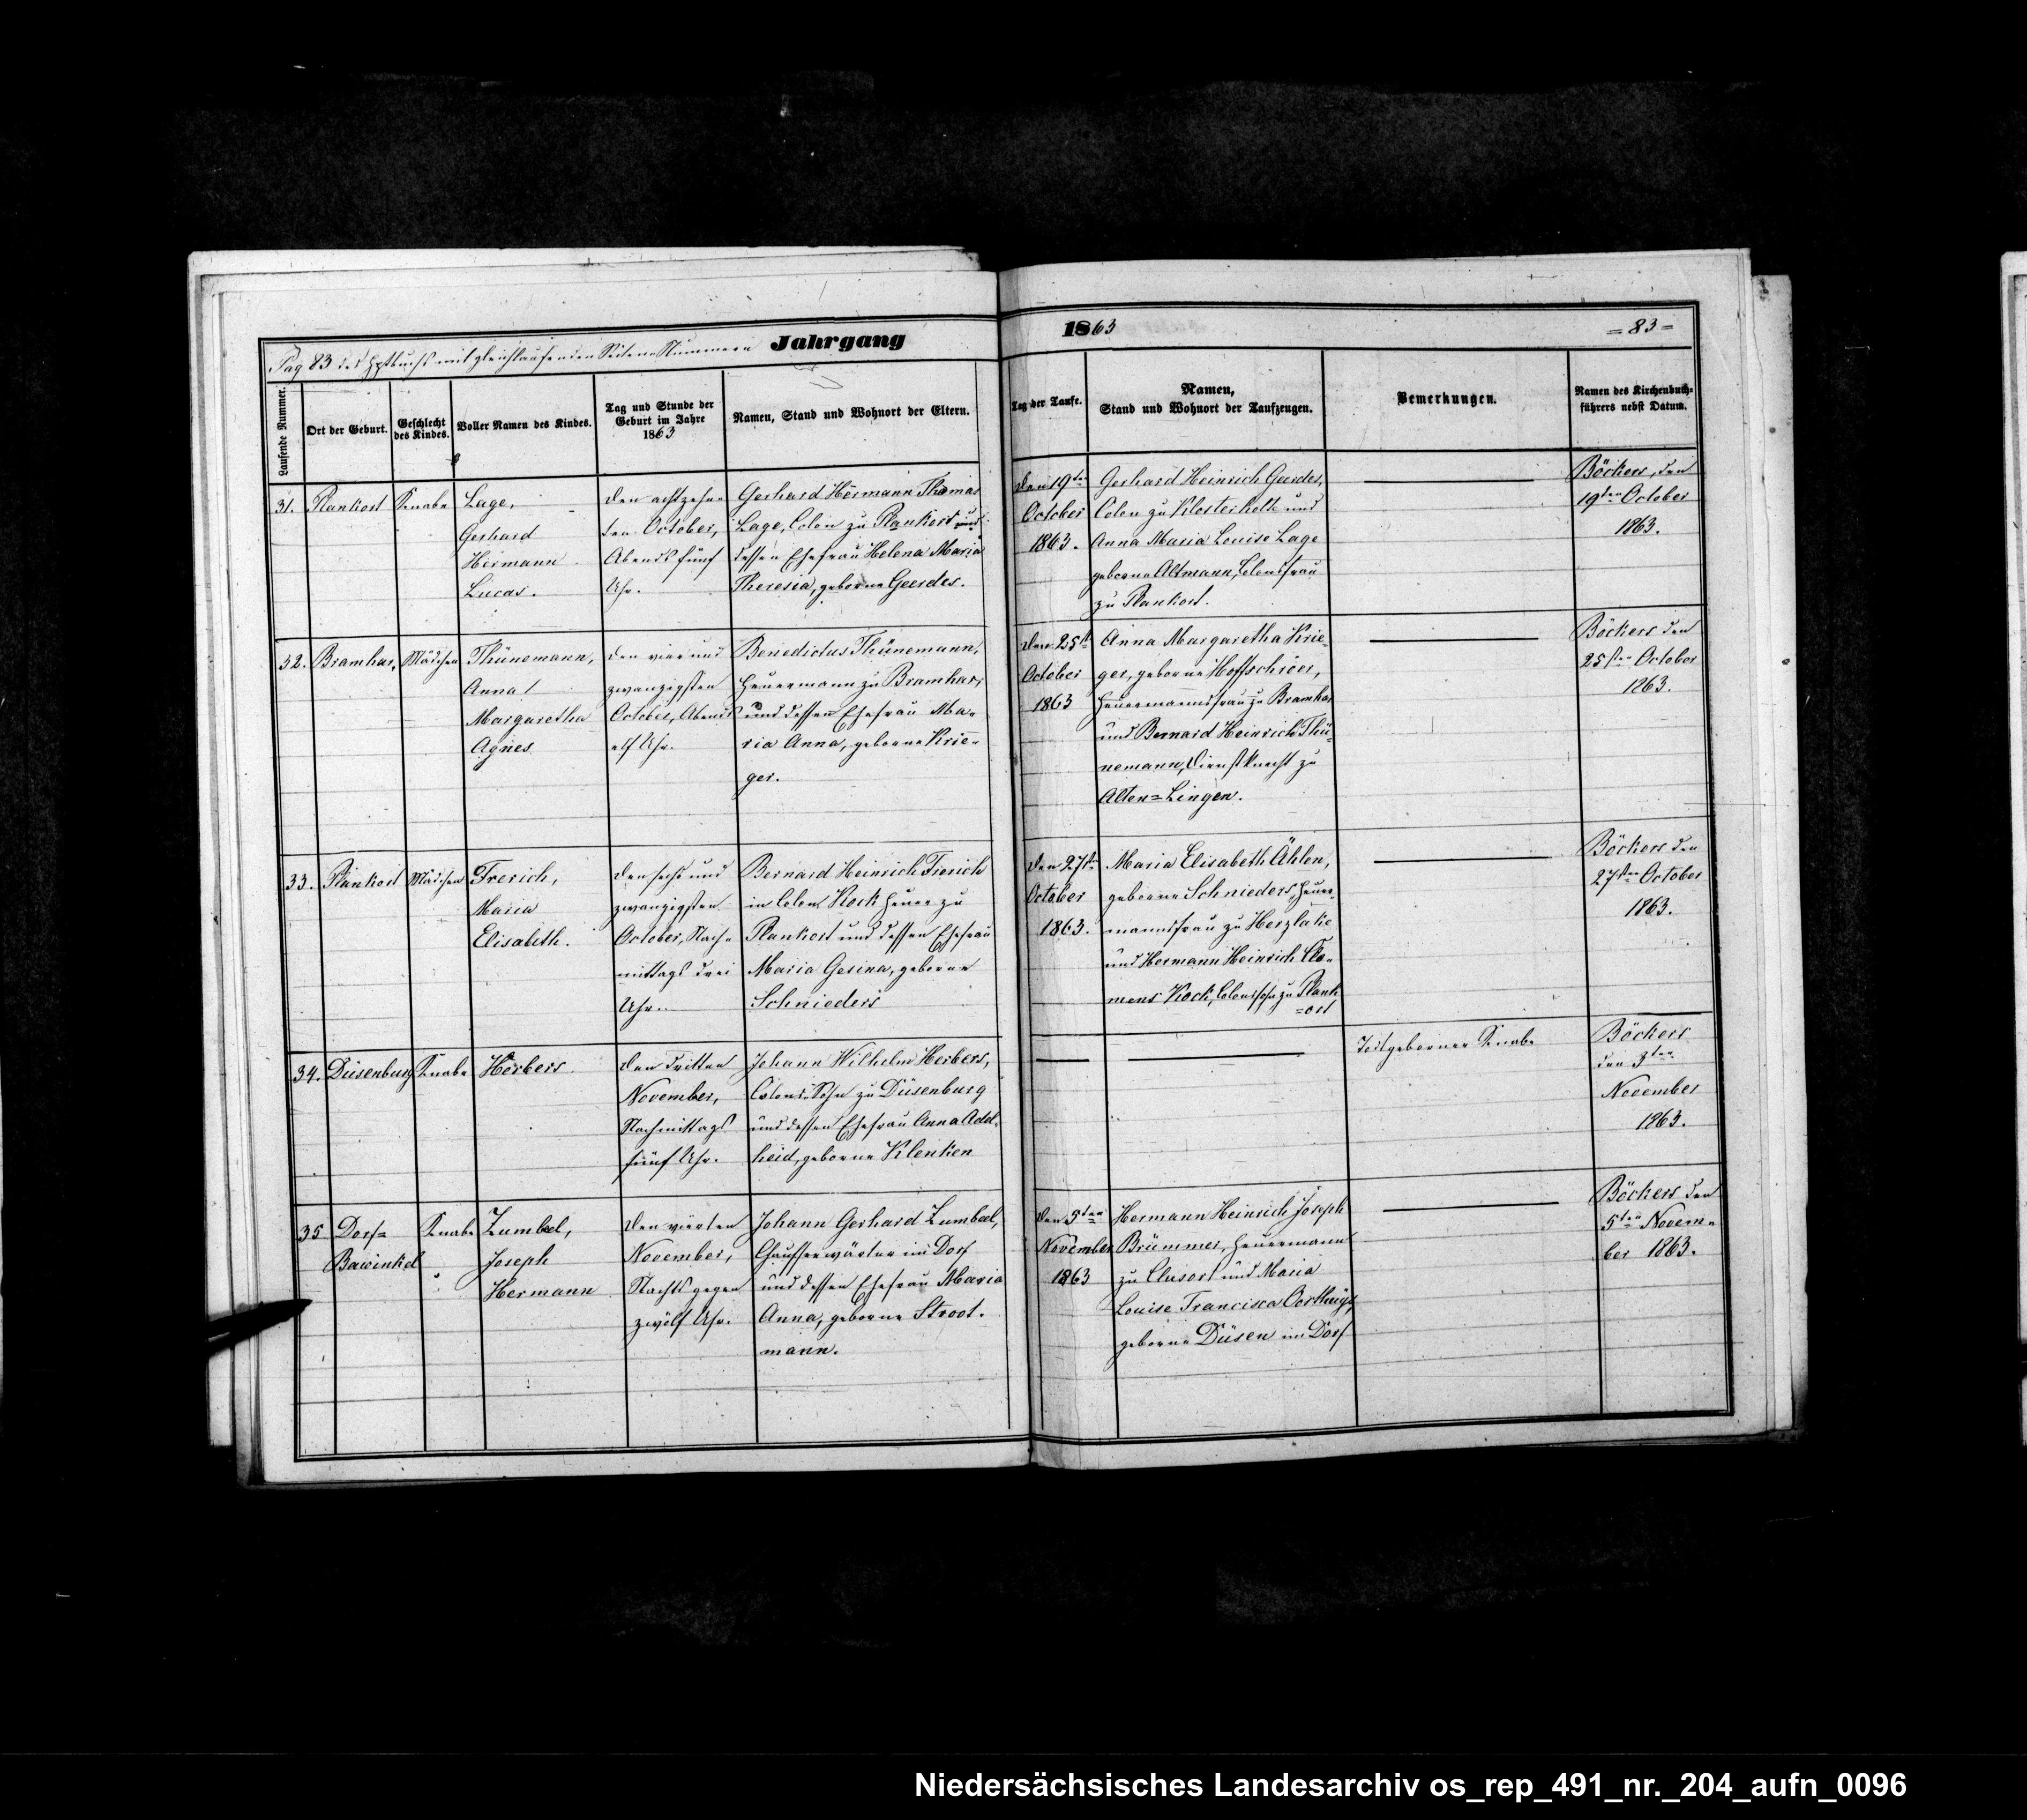 Jahrgang
1863
= 83 =
Pag 83 des Hptbuchs mit gleichlaufenden Seiten Nummern
Laufende Nummer.
Ort der Geburt.
Geschlecht
des Kindes.
Voller Namen des Kindes.
Tag und Stunde der
Geburt im Jahre
1863
Namen, Stand und Wohnort der Eltern.
Tag der Taufe.
Namen,
Stand und Wohnort der Taufzeugen.
Bemerkungen.
Namen des Kirchenbuch-
führers nebst Datum.
31.
Plankort
Knabe
Lage,
Gerhard
Hermann
Lucas.
den achtzehn-
ten October,
Abends fünf
Uhr.
Gerhard Hermann Thomas
Lage, Colon zu Plankort und
dessen Ehefrau Helena Maria
Theresia, geborne Geerdes.
den 19ten
October
1863.
Gerhard Heinrich Geerdes,
Colon zu Klosterholte und
Anna Maria Louise Lage
geborne Altmann, Colonsfrau
zu Plankort.
Böckers, den
19ten October
1863.
32.
Bramhar,
Mädchen
Thünemann,
Anna
Margaretha
Agnes
den vier und
zwanzigsten
October, Abends
elf Uhr.
Benedictus Thünemann,
Heuermann zu Bramhar,
und dessen Ehefrau Ma-
ria Anna, geborne Krie-
ger.
den 25st
October
1863
Anna Margaretha Krie-
ger, geborne Hoffschröer,
Heuermannsfrau zu Bramhar
und Bernard Heinrich Thü-
nemann, Dienstknecht zu
Alten=Lingen.
Böckers den
25sten October
1863.
33.
Plankort
Mädchen
Frerich,
Maria
Elisabeth.
den sechs und
zwanzigsten
October, Nach-
mittags drei
Uhr.
Bernard Heinrich Frerich
in Colon Kock Heuer zu
Plankort und dessen Ehefrau
Maria Gesina, geborne
Schnieders
den 27st
October
1863.
Maria Elisabeth Ählen,
geborne Schnieders, Heuer-
mannsfrau zu Herzlake
und Hermann Heinrich Cle-
mens Kock, Colonssohn zu Plank
=ort
Böckers den
27sten October
1863.
34.
Düsenburg
Knabe
Herbers
den dritten
November,
Nachmittags
fünf Uhr.
Johann Wilhelm Herbers,
Colons-Sohn zu Düsenburg
und dessen Ehefrau Anna Adel-
heid, geborne Klenken
Todtgeborner Knabe
Böckers
den 3ten
November
1863.
35
Dorf=
Bawinkel
Knabe
Zumbeel,
Joseph
Hermann
den vierten
November,
Nachts gegen
zwölf Uhr.
Johann Gerhard Zumbeel,
Chausseewärter im Dorf
und dessen Ehefrau Maria
Anna, geborne Stroot-
mann.
den 5ten
November
1863
Hermann Heinrich Joseph
Brümmer, Heuermann
zu Clusort und Maria
Louise Francisca
geborne Düsen im Dorf
Böckers den
5ten Novem-
ber 1863.
Niedersächsisches Landesarchiv os_rep_491_nr._204_aufn_0096